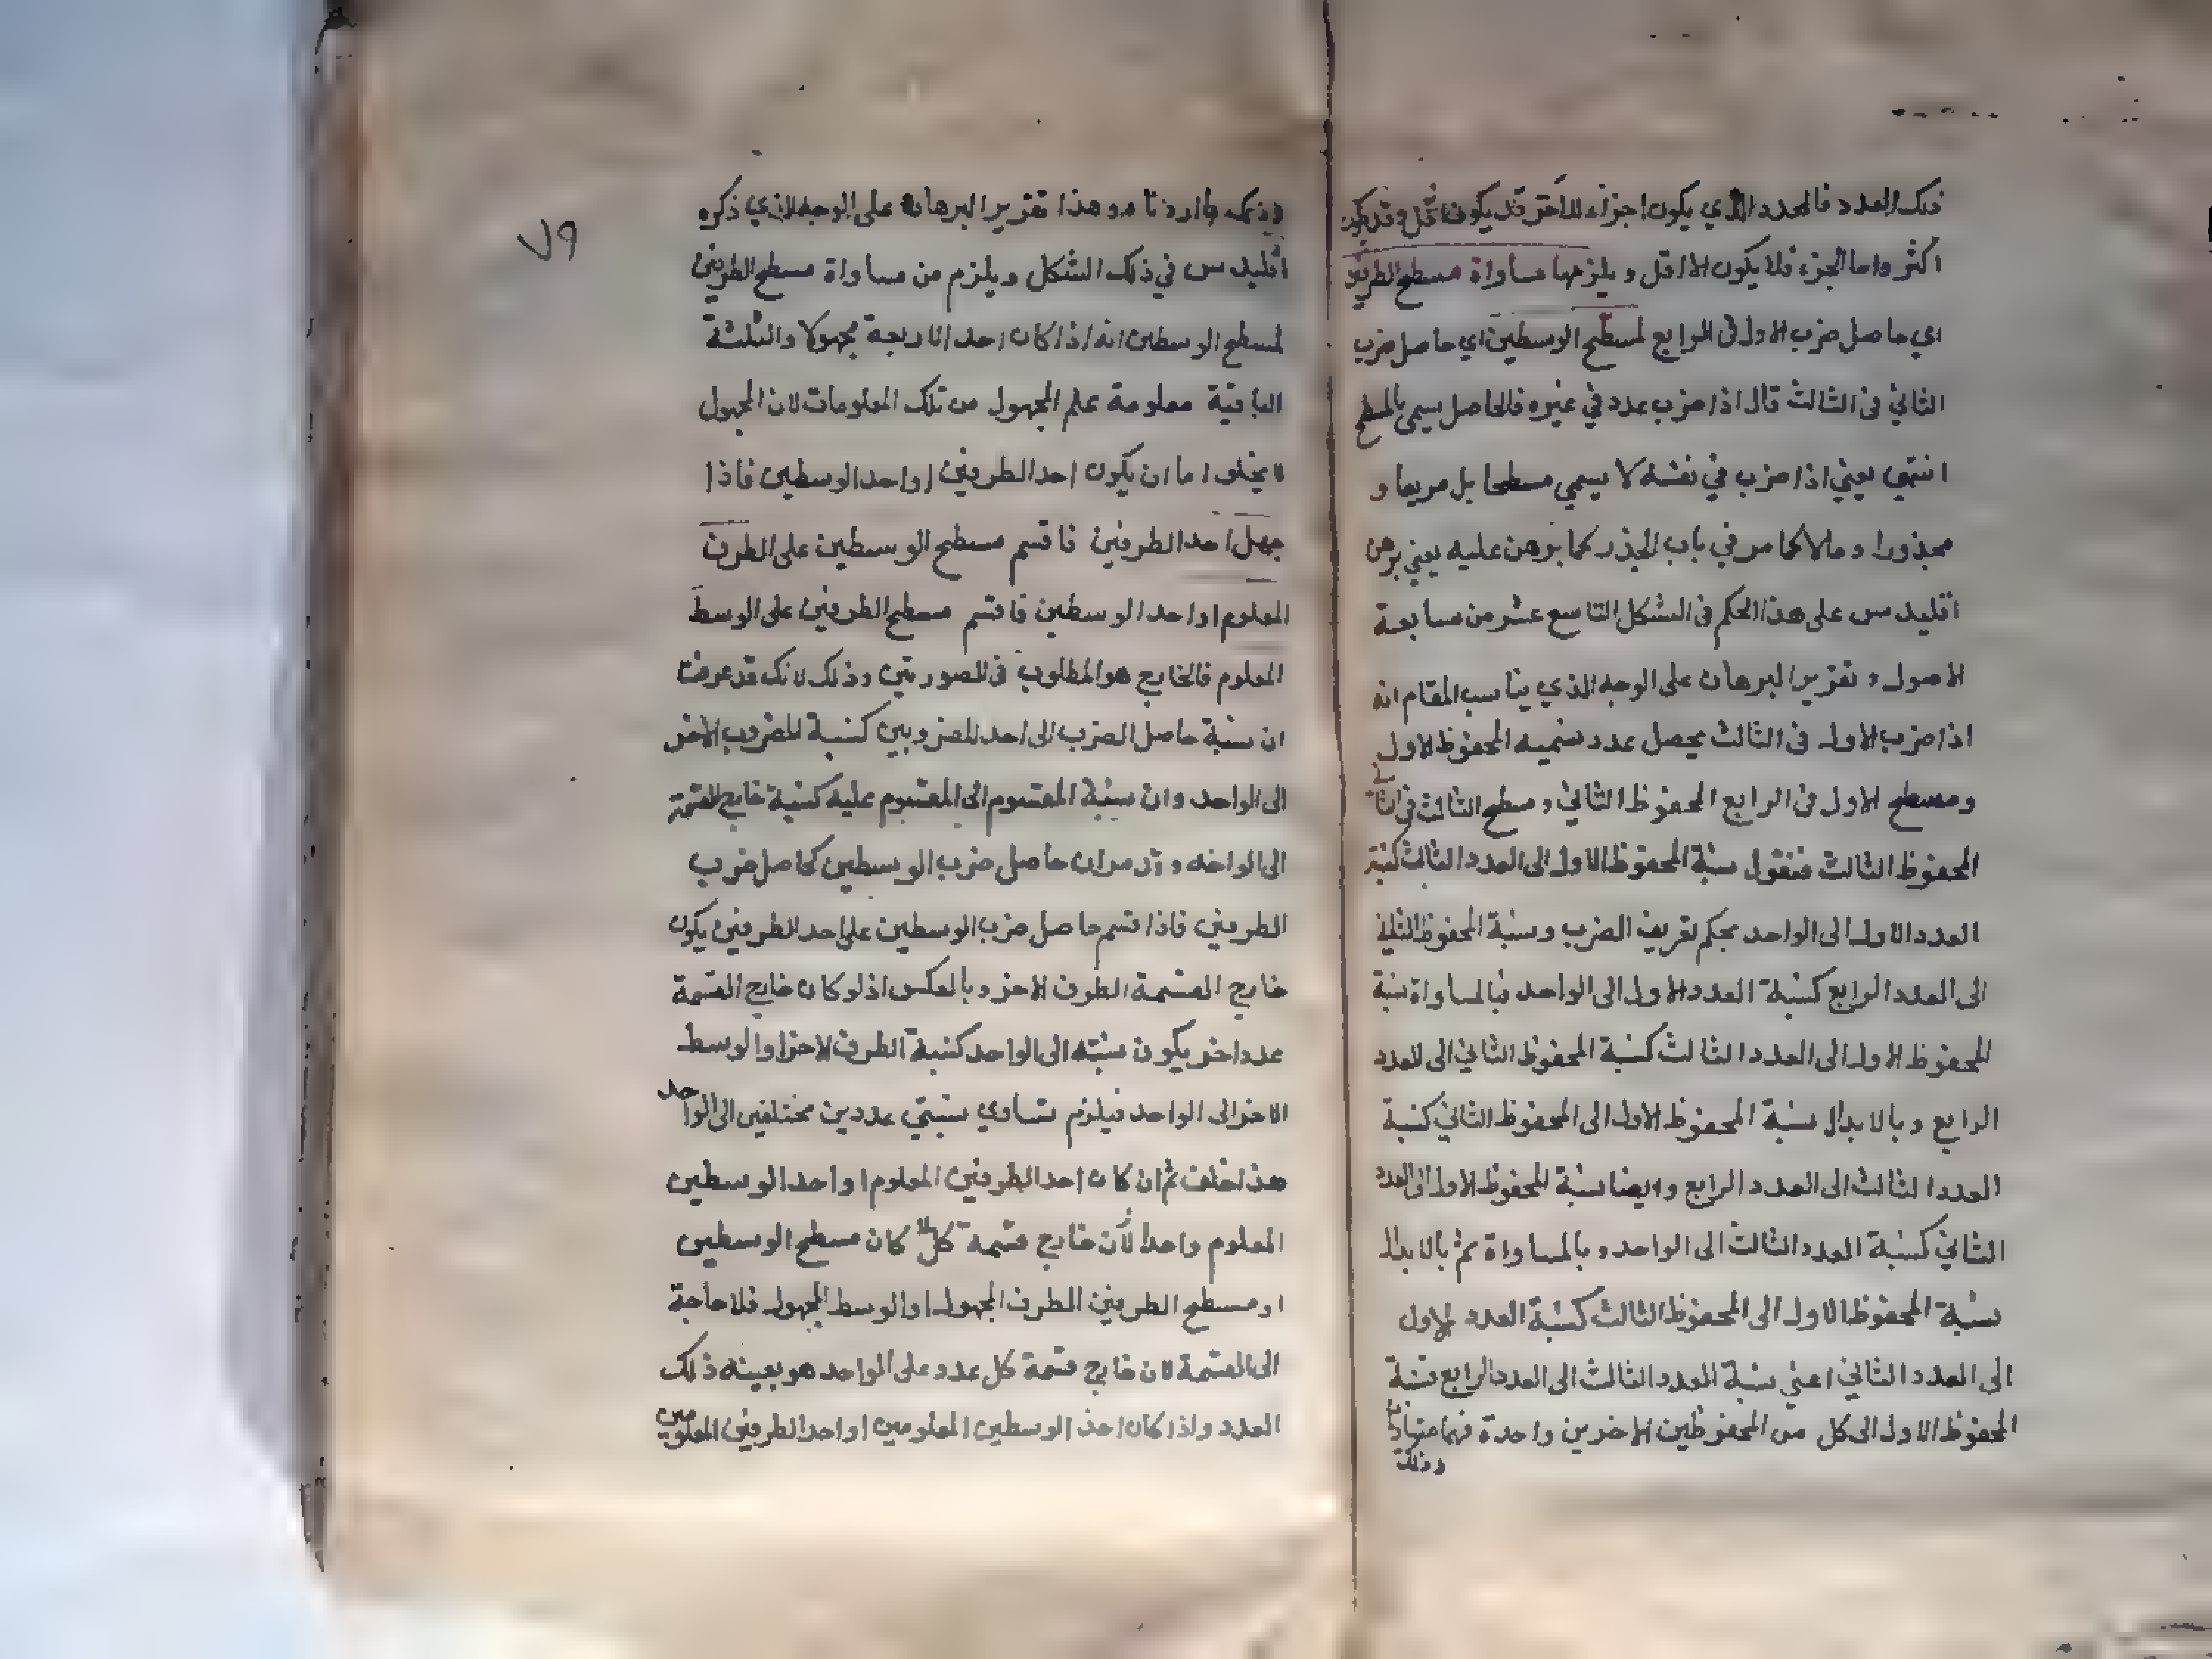 ذلك العدد فالعدد الذي يكون اجزاء للآخر قد يكون اقل وقد يكون
اكثر واما الجزء فلا يكون الا اقل ويلزمها مساواة مسطح الطرفين
اي حاصل ضرب الاول فى الرابع لمسطح الوسطين اي حاصل ضرب
الثاني فى الثالث قال اذا ضرب عدد في غيره فالحاصل يسمى بالمسطح
انتهى يعني اذا ضرب في نفسه لا يسمي مسطحا بل مربعا و
مجذورا ومالا كما مر في باب الجذر كما برهن عليه يعني برهن
اقليدس على هذا الحكم فى الشكل التاسع عشر من سابعة
الاصول وتقرير البرهان على الوجه الذي يناسب المقام انه
اذا ضرب الاول فى الثالث يحصل عدد نسميه المحفوظ الاول
ومسطح الاول فى الرابع المحفوظ الثاني ومسطح الثالث فى الثاني
المحفوظ الثالث فنقول نسبة المحفوظ الاول الى العدد الثالث كنسبة
العدد الاول الى الواحد بحكم تعريف الضرب ونسبة المحفوظ الثاني
الى العدد الرابع كنسبة العدد الاول الى الواحد فبالمساواة نسبة
المحفوظ الاول الى العدد الثالث كنسبة المحفوظ الثاني الى العدد
الرابع وبالابدال نسبة المحفوظ الاول الى المحفوظ الثاني كنسبة
العدد الثالث الى العدد الرابع وايضا نسبة المحفوظ الاول الى العدد
الثاني كنسبة العدد الثالث الى الواحد وبالمساواة ثم بالابدال
نسبة المحفوظ الاول الى المحفوظ الثالث كنسبة العدد الاول
الى العدد الثاني اعني نسبة العدد الثالث الى العدد الرابع فنسبة
المحفوظ الاول الى كل من المحفوظين الاخرين واحدة فهما متساويان
وذلك
٧٩
وذلك ما اردناه وهذا تقرير البرهان على الوجه الذي ذكره
اقليدس في ذلك الشكل ويلزم من مساواة مسطح الطرفين
لمسطح الوسطين انه اذا كان احد الاربعة مجهولا والثلثة
الباقية معلومة علم المجهول من تلك المعلومات لان المجهول
لا يخلو اما ان يكون احد الطرفين او احد الوسطين فاذا
جهل احد الطرفين فاقسم مسطح الوسطين على الطرف
المعلوم او احد الوسطين فاقسم مسطح الطرفين على الوسط
المعلوم فالخارج هو المطلوب فى الصورتين وذلك لانك قد عرفت
ان نسبة حاصل الضرب الى احد المضروبين كنسبة المضروب الاخر
الى الواحد وان نسبة المقسوم الى المقسوم عليه كنسبة خارج القسمة
الى الواحد وقد مر ان حاصل ضرب الوسطين كحاصل ضرب
الطرفين فاذا قسم حاصل ضرب الوسطين على احد الطرفين يكون
خارج القسمة الطرف الاخر وبالعكس اذ لو كان خارج القسمة
عددا اخر يكون نسبته الى الواحد كنسبة الطرف الاخر او الوسط
الاخر الى الواحد فيلزم تساوي نسبتي عددين مختلفين الى الواحد
هذا خلف ثم ان كان احد الطرفين المعلوم او احد الوسطين
المعلوم واحدا لان خارج قسمة كل كان مسطح الوسطين
او مسطح الطرفين الطرف المجهول او الوسط المجهول فلا حاجة
الى القسمة لان خارج قسمة كل عدد على الواحد هو بعينه ذلك
العدد واذا كان احد الوسطين المعلومين او احد الطرفين المعلومين